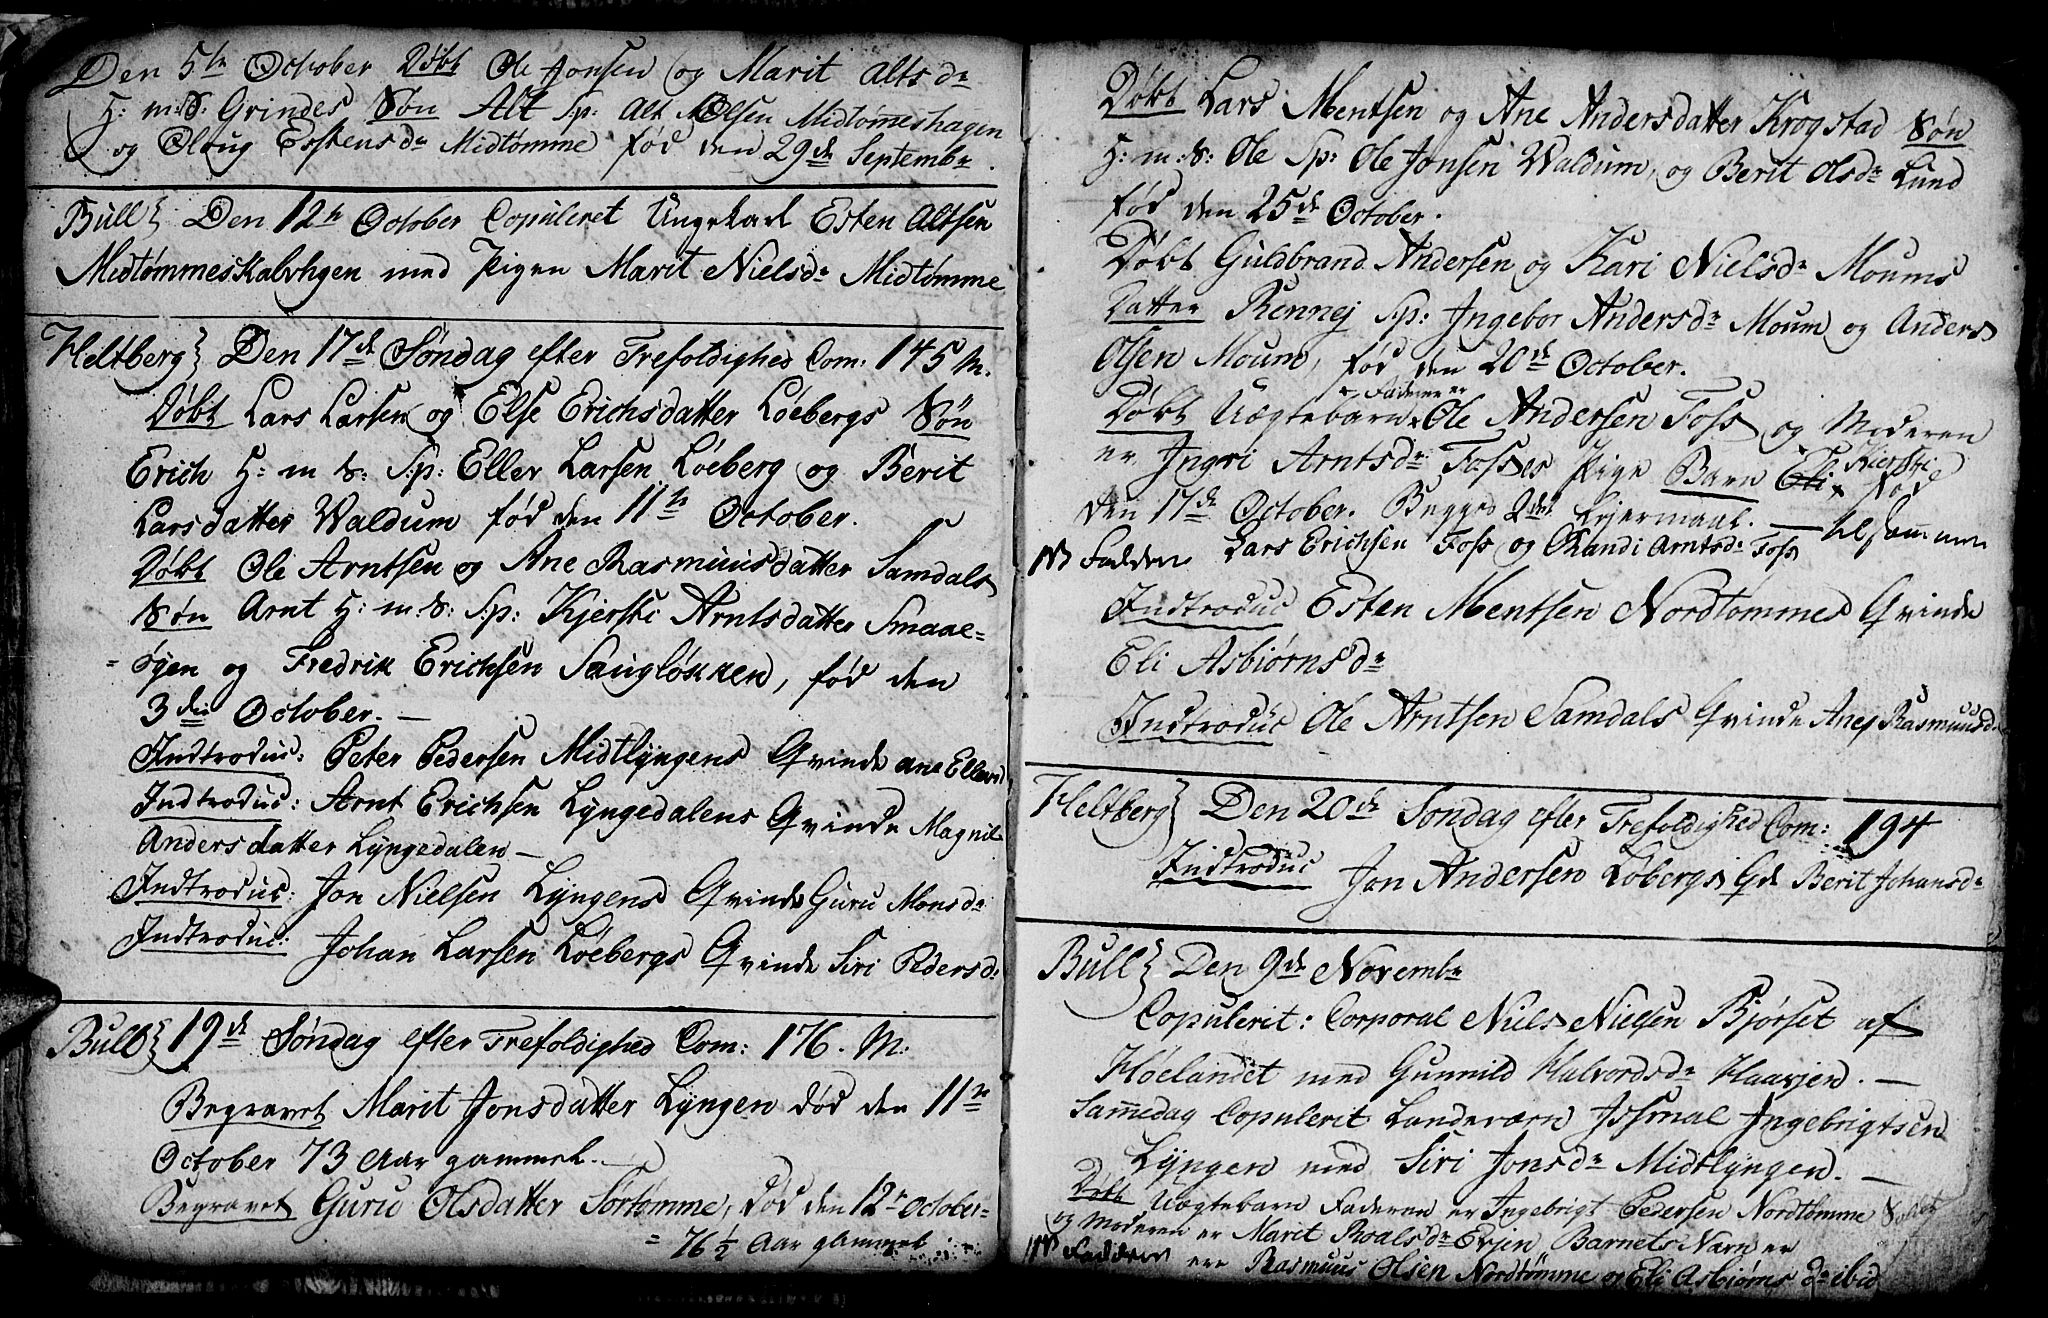 Den 5te October Døbt Ole Jonsen og Marit Altsdr
H: m: S: Grindes Søn Alt S:p: Alt Olsen Midtømeshagen
og Oloug Estensdr Midtømme fød den 29de Septembr.
Büll} Den 12te October Copuleret Ungekarl Esten Altsen
Midtømmeskalvhgen med Pigen Marit Nielsdr Midtømme
Heltberg} Den 17de Søndag efter Trefoldighed Com: 145 M.
Døbt Lars Larsen og Else Erichsdatter Løebergs Søn
Erich H: m S: S:p: Eller Larsen Løeberg og Berit
Larsdatter Waldum fød den 11te October.
Døbt Ole Arntsen og Ane Rasmuusdatter Samdals
Søn Arnt H: m: S: S:p: Kjersti Arntsdatter Smaae=
=øyen og Fredrik Erichsen Saugløkken, fød den
3die October. —
Indtroduc: Peter Pedersen Midtlyngens Qvinde Ane Ellevsd
Indtroduc: Arnt Erichsen Lyngedalens Qvinde Magnil
Andersdatter Lyngedalen —
Indtroduc: Jon Nielsen Lyngens Qvinde Guru Monsdr
Indtroduc: Johan Larsen Løebergs Qvinde Siri Pedersd:
Bull} 19de Søndag efter Trefoldighed Com: 176. M:
Begravet Marit Jonsdatter Lyngen død den 11te
October 73 Aar gammel. —
Begravet Guru Olsdatter Sørtømme, død den 12te October=
= 76 1/2 Aar gammel
Døbt Lars Mentsen og Ane Andersdatter Krogstad Søn
H: m: S: Ole S:p: Ole Jonsen Waldum, og Berit Olsdr Lund
fød den 25de October.
Døbt Guldbrand Andersen og Kari Nielsdr Moums
Datter Rennej S:p: Ingebor Andersdr Moum og Anders
Olsen Moum, fød den 20de October.
Faderen er
Døbt Uægtebarn Ole Andersen Foss og Moderen
er Ingri Arntsdr Fosses Pige Barn Eli Kiersti fød
den 17de October. Begges 2det Lejermaal. — tilsammen
NB Faddere Lars Erichsen Foss og Randi Arntsdr Foss
Indtroduc Esten Mentsen Nordtømmes Qvinde
Eli Asbiørnsdr
Indtroduc Ole Arntsen Samdals Qvinde Ane Rasmuusd
Heltberg} Den 20de Søndag efter Trefoldighed Com: 194
Indtroduc Jon Andersen Løbergs Qd Berit Johansdr
Bull} Den 9de Novembr
Copulerit: Corporal Niels Nielsen Bjørset af
Høelandet med Gunnild Halvordsdr Haavjen. —
Sam̄edag Copulerit Landeværn Issmal Ingebrigtsen
Lyngen med Siri Jonsdr Midtlyngen. —
Døbt Uægtebarn Faderen er Ingebrigt Pedersen Nordtømme
og Moderen er Marit Roalsdr Evjen Barnets Navn er
NB Faddere ere Rasmuus Olsen Nordtømme og Eli Asbiørnsdr ibid